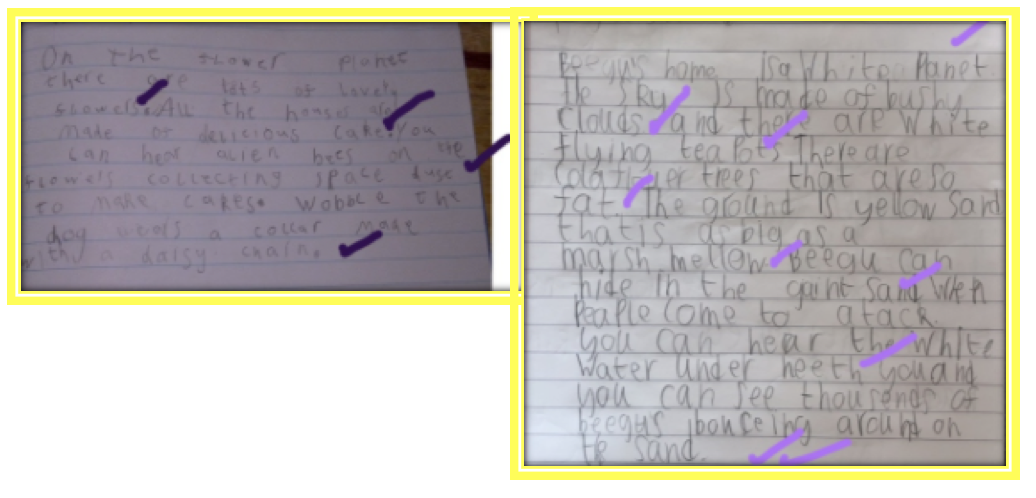 On the flower Planet
there are lots of lovely
flowers. All the houses are
made of delicious cake. You
can hear alien bees on the
flowers collecting space dust
to make cakes. Wobble the
dog wears a collar made
with a daisy chain.
Beegu's home Is a White Planet.
The sky Is made of bushy
Clouds and there are White
flying tea Pots There are
trees that are so
fat. The ground Is yellow sand
that is as big as a
marsh mellow. Beegu can
hide In the gaint sand When
Peaple come to atack.
you can hear the White
Water under neeth you and
you can see thousends of
beegus bounceing around on
the sand.